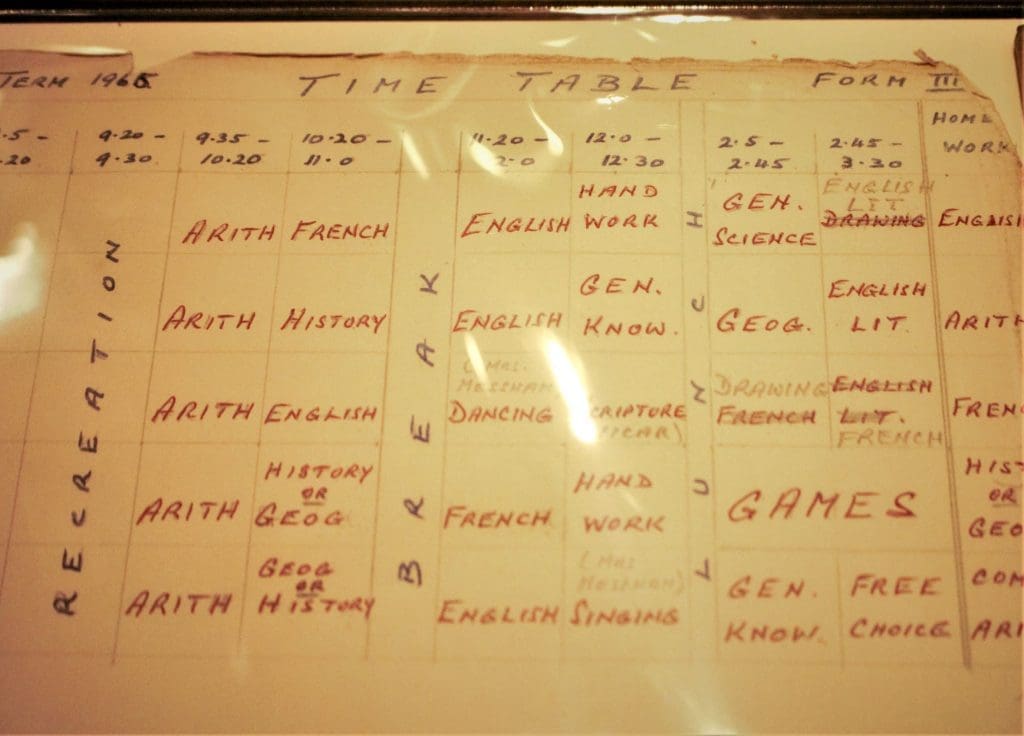 TERM 1965 TIME TABLE FORM III
HOME WORK
.5 - .20 9.20 - 9.30 9.35 - 10.20 10.20 - 11.0 11.20 - 12.0 - 12.30 2.5 - 2.45 2.45 - 3.30
RECREATION
BREAK
LUNCH
ARITH FRENCH ENGLISH HAND WORK GEN. SCIENCE ENGLISH LIT DRAWING ENGLISH
ARITH HISTORY ENGLISH GEN. KNOW. GEOG. ENGLISH LIT. ARITH
ARITH ENGLISH (MRS. DANCING SCRIPTURE VICAR) DRAWING FRENCH ENGLISH LIT. FRENCH FREN
ARITH HISTORY OR GEOG FRENCH HAND WORK GAMES HIST OR GEO
ARITH GEOG OR HISTORY ENGLISH (MRS SINGING GEN. KNOW. FREE CHOICE COM ARI